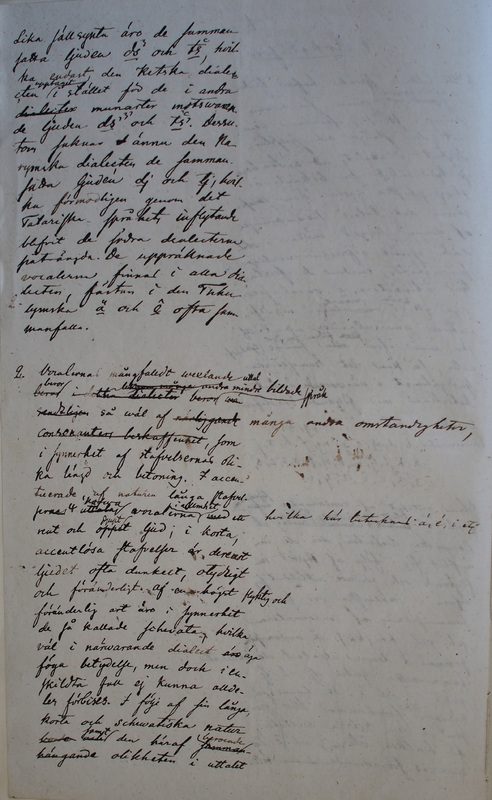 Lika sällsynta äro de samman
satta ljuden ds och ts, hvil
ka endast den Ketska dialec
ten upptagit i stället för de i andra
dialecter munarter motswaran
de ljuden ds och ts. Dessu
tom saknar ännu den Ka
rymska dialecten de samman
satta ljuden dj och tj, hvil
ka förmodligen genom det
Tatariska språkets inflytande
blifvit de södra dialecterna
påträngda. De uppräknade
vocalerna finnas i alla dia
lecter, fastän i den
ä och ofta sam
manfalla.
2. Vocalernas mångfaldt wexlande uttal
beror i andra mindre bildade språk
beror
så wäl af många andra omständigheter,
consonanters beskaffenhet, som
i synnerhet af stafvelsernas oli
ka längd och betoning. I accen
tuerade af naturen långa stafvel
ser vocalerna i allmänhet ett
rent och öppet ljud; i korta, hvilka här betecknas
accentlösa stafvelser är deremot
ljudet ofta dunkelt, otydligt
och föränderligt. Af en högst flyktig och
föränderlig art äro i synnerhet
de så kallade schevata, hvilka
väl i närwarande dialect äga
föga betydelse, men dock i en
skildta fall ej kunna allde
les förbises. I följe af sin långa,
korta och schewatiska natur
samt den häraf beroende samman
hängande olikheten i uttalet